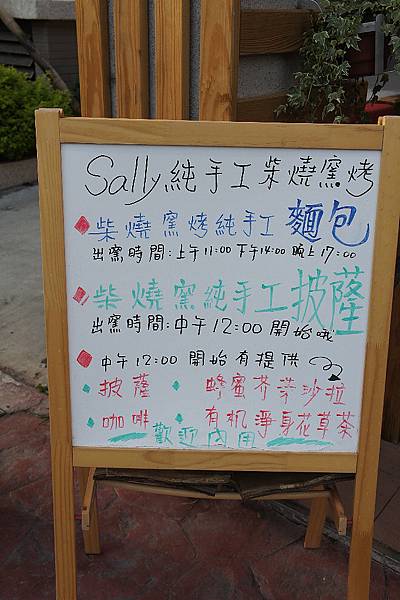 Sally純手工柴燒窯烤
柴燒窯烤純手工麵包
出窯時間:上午11:00 下午14:00 晚上17:00
柴燒窯純手工披薩
出窯時間:中午12:00開始哦
中午12:00 開始有提供
披薩 蜂蜜芥茉沙拉
咖啡 有机淨身花草茶
歡迎內用